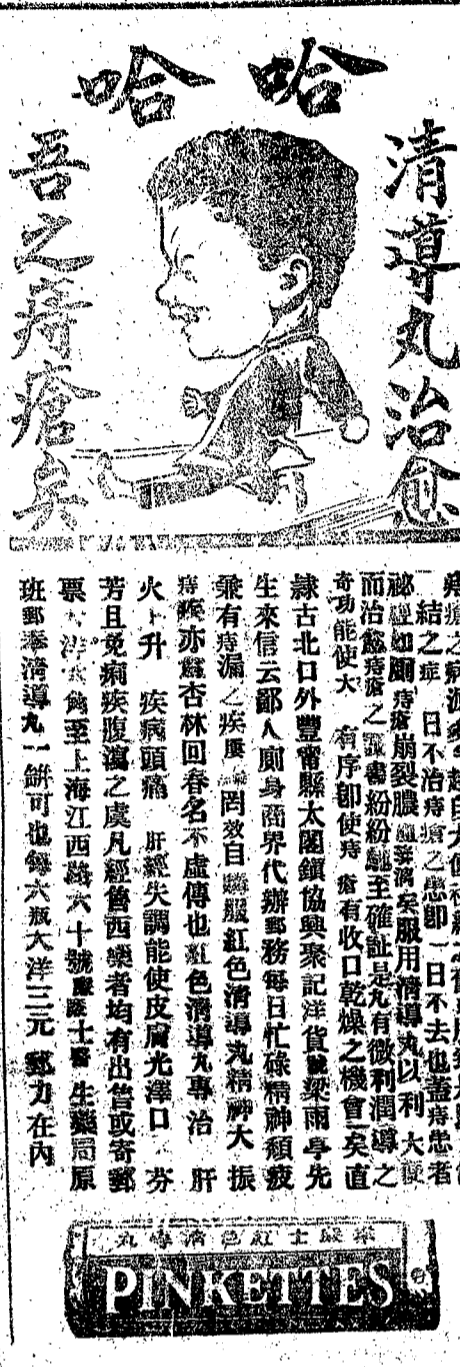 哈哈
清導丸治愈
吾之痔瘡矣
結之症 日不治痔瘡之患即一日不去也蓋痔患者
痔瘡崩裂膿 服用清導丸以利大便
而治愈痔瘡之 書紛紛 至確証是丸有微利潤導之
奇功能使大 有序即使痔瘡有收口乾燥之機會矣直
隷古北口外豐甯縣太閣鎮協興聚記洋貨號梁雨亭先
生來信云鄙人廁身商界代辦郵務每日忙碌精神頽疲
兼有痔漏之疾屢 罔效自 服紅色清導丸精神大振
痔疾亦 杏林回春名不虛傳也紅色清導丸專治 肝
火上升 疾病頭痛 肝經失調能使皮膚光澤口 芬
芳且免痢疾腹瀉之虞凡經售西藥者均有出售或寄郵
票 至上海江西路六十號 士醫生藥局原
班郵奉清導丸一餅可也每六瓶大洋三元郵力在內
士紅色清導丸
PINKETTES